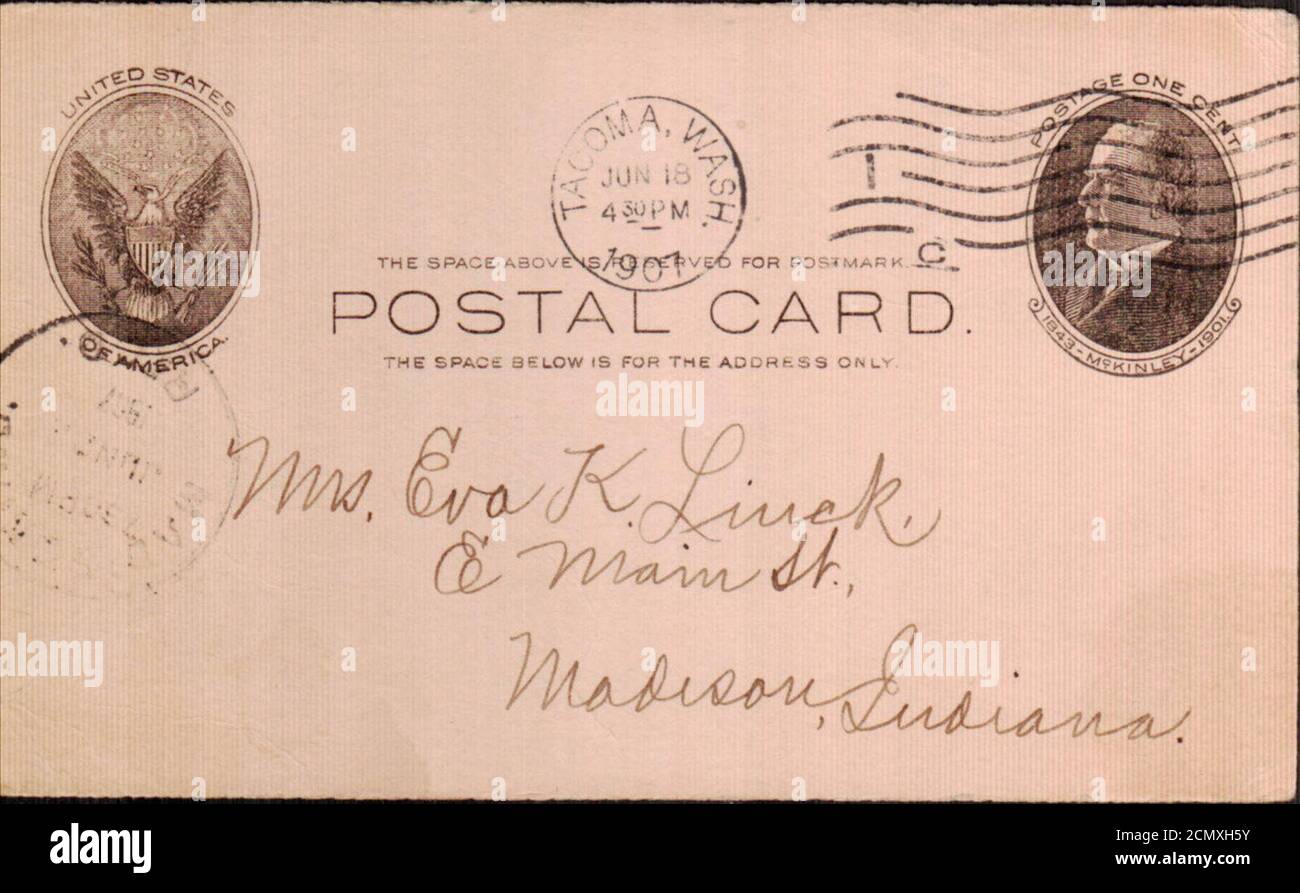 UNITED STATES
OF AMERICA.
TACOMA, WASH.
JUN 18
4 30 PM
1907
1
C
POSTAGE ONE CENT
1843-McKINLEY-1901.
THE SPACE ABOVE IS RESERVED FOR POSTMARK.
POSTAL CARD.
THE SPACE BELOW IS FOR THE ADDRESS ONLY.
Mrs. Eva K. Linck.
E Main St.,
Madison, Indiana.
alamy
a
alamy
Image ID: 2CMXH5Y
www.alamy.com